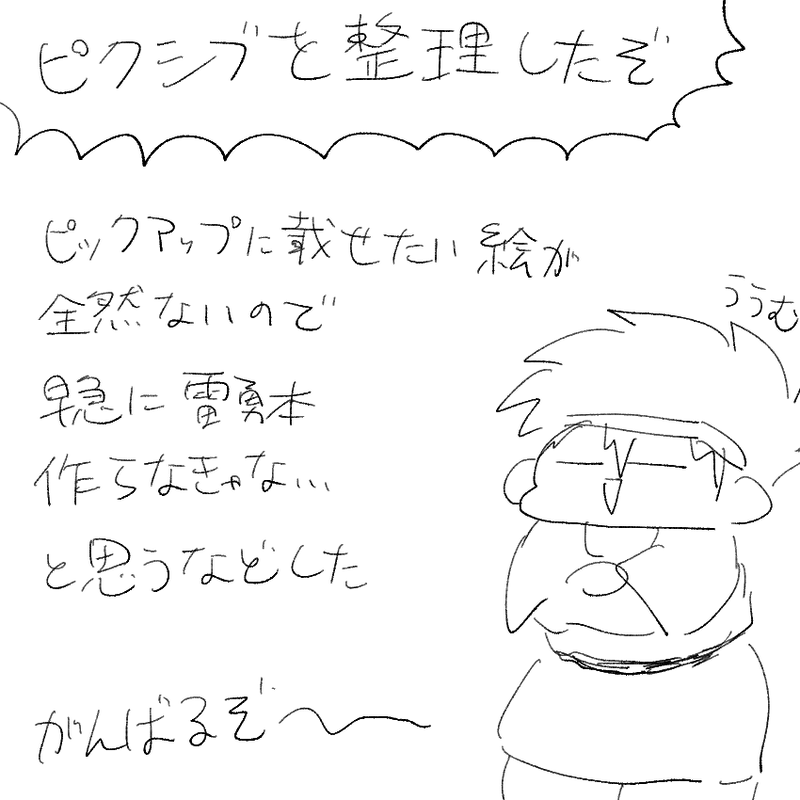 ピクシブを整理したぞ
ピックアップに載せたい絵が
全然ないので
早急に雷勇本
作らなきゃない…
と思うなどした
ううむ
がんばるぞ〜